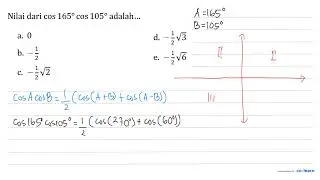 Nilai dari cos 165° cos 105° adalah...
a. 0
b. -1/2
c. -1/2√2
d. -1/2√3
e. -1/2√6
A = 165°
B = 105°
II
I
III
cosA cosB = 1/2 (cos(A+B) + cos(A-B))
cos165° cos105° = 1/2 (cos(270°) + cos(60°))